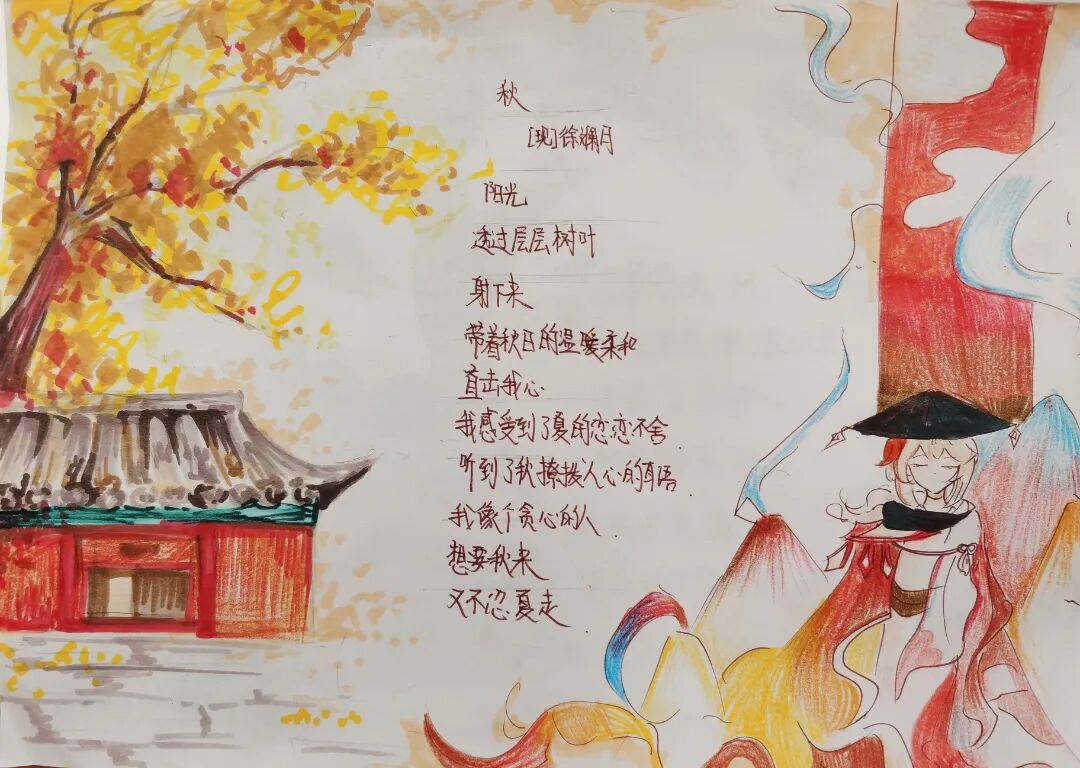 秋
[现]徐斓月
阳光
透过层层树叶
射下来
带着秋日的温暖柔和
直击我心
我感受到了夏的恋恋不舍.
听到了秋撩拨人心的耳语.
我像个贪心的人.
想要秋来
又不忍夏走.